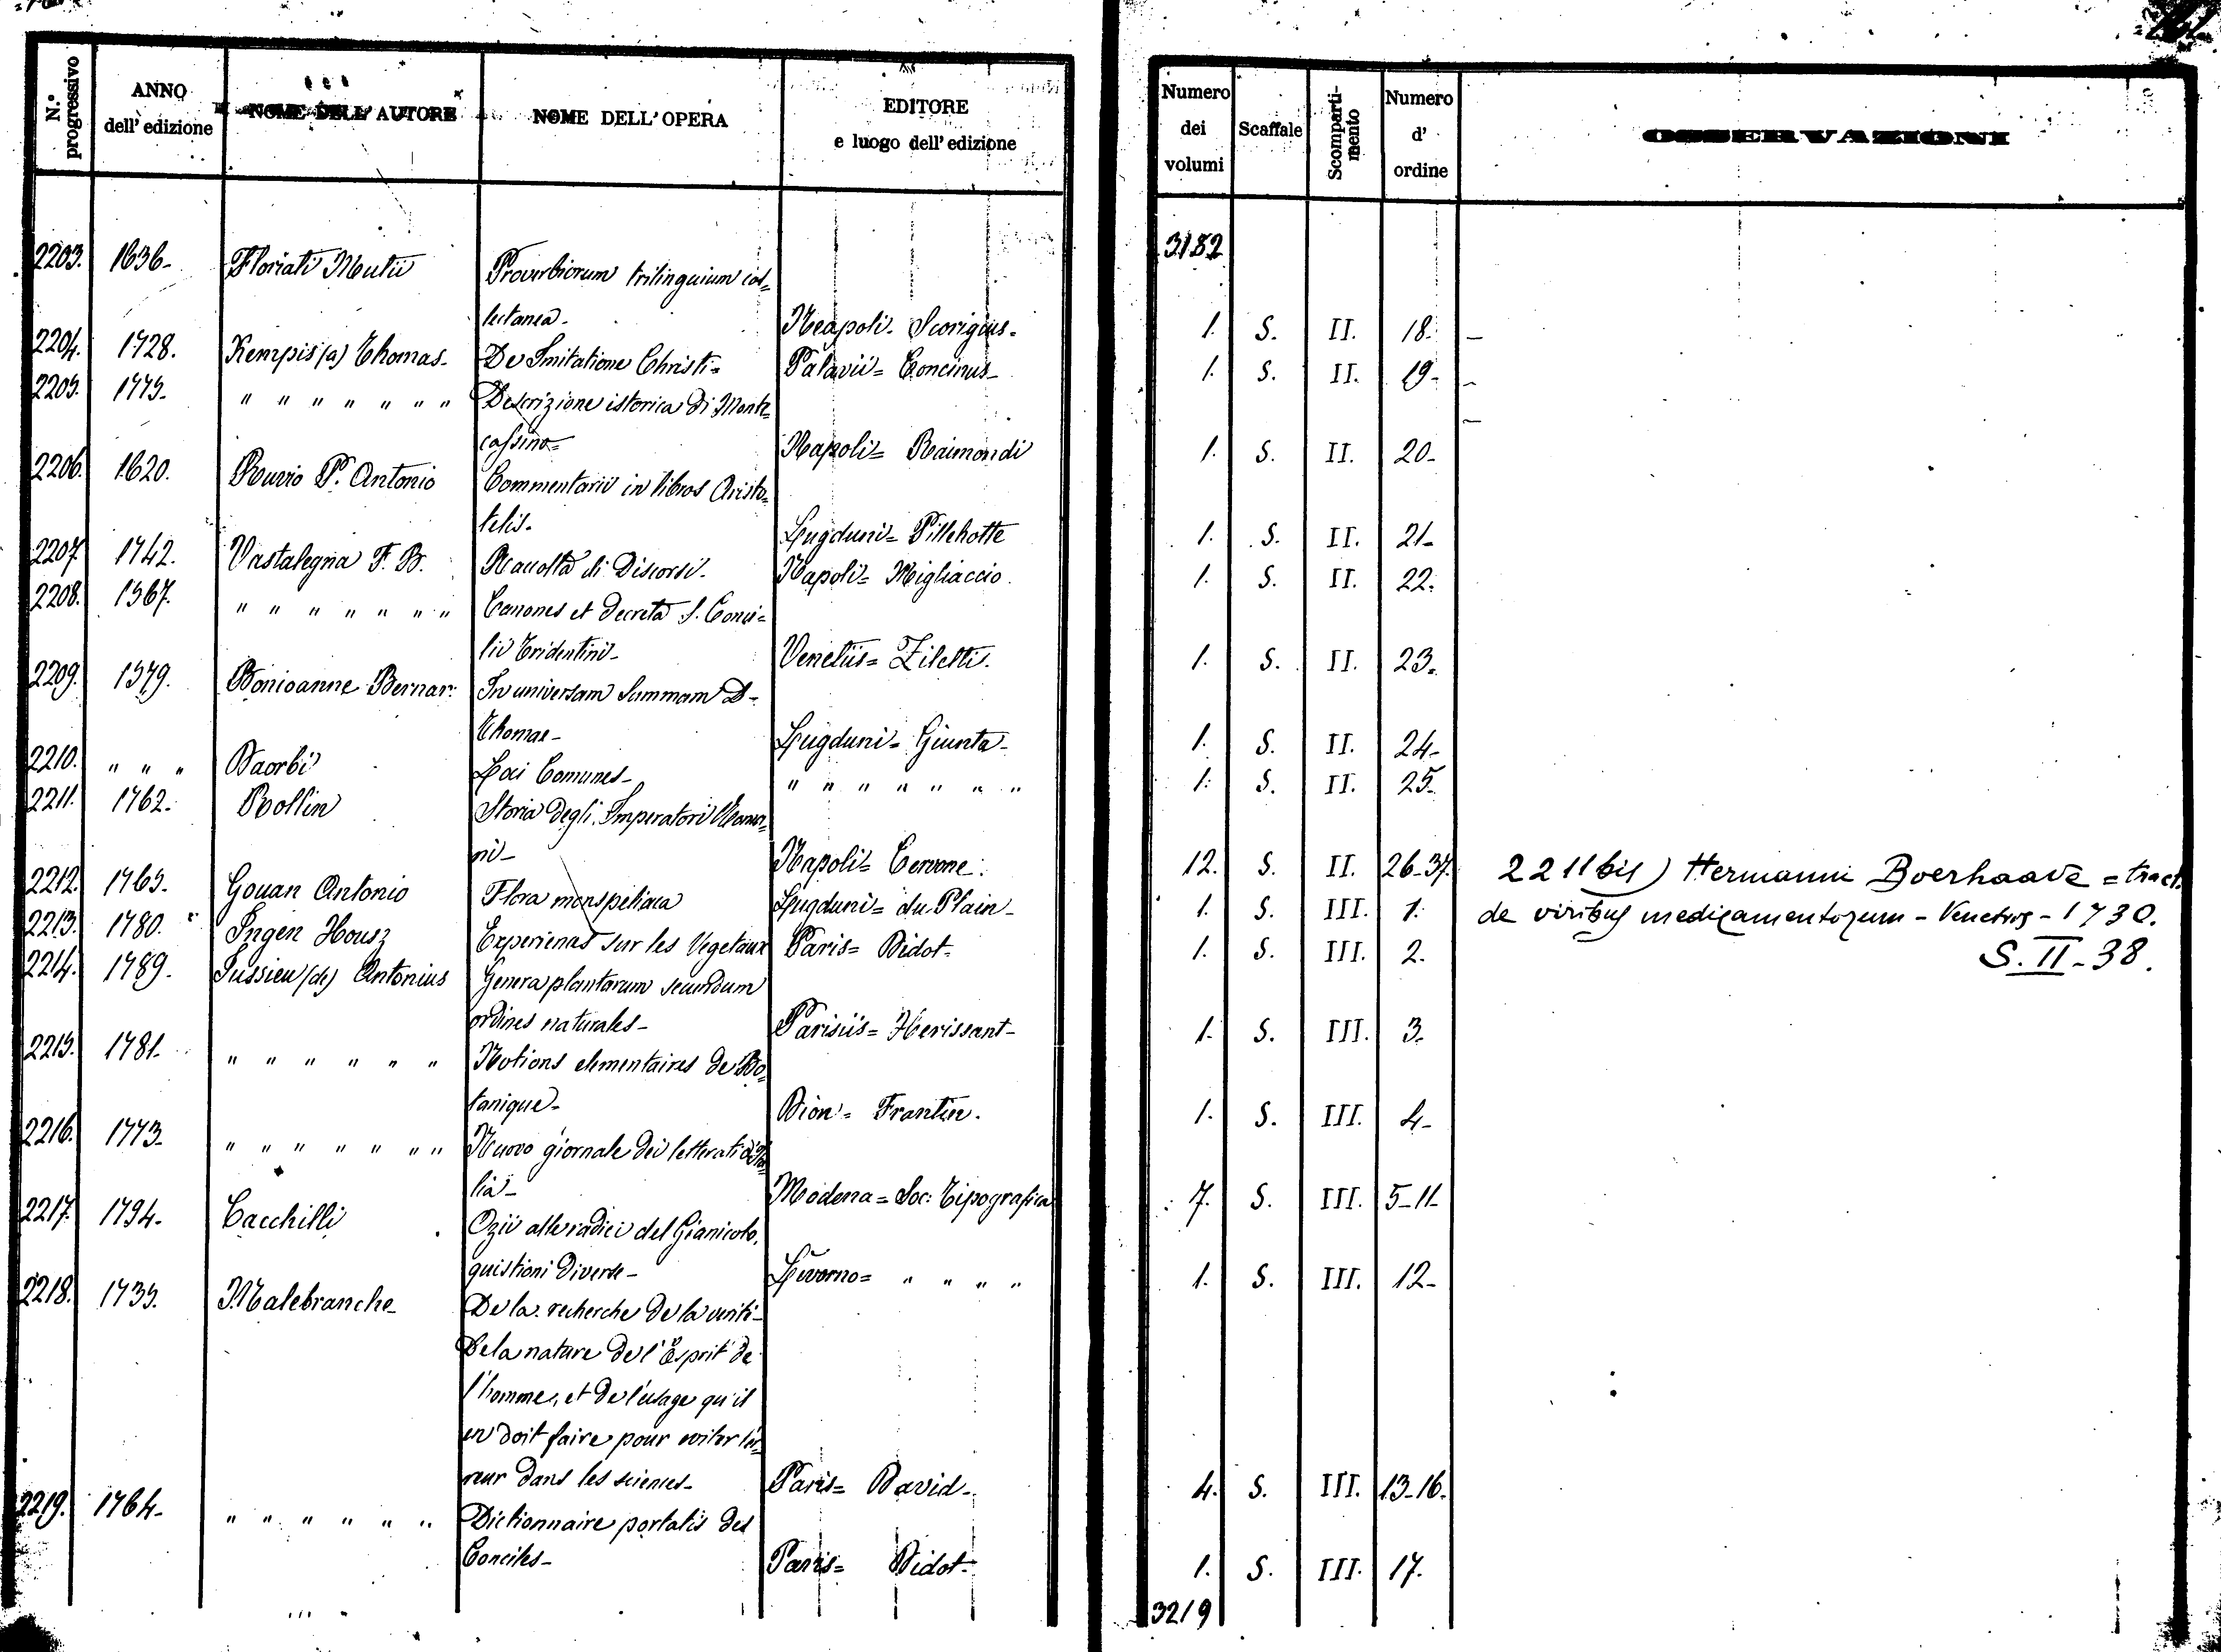 N.º progressivo
ANNO dell'edizione
NOME DELL'AUTORE
NOME DELL'OPERA
EDITORE e luogo dell'edizione
Numero dei volumi
Scaffale
Scompartimento
Numero d'ordine
OSSERVAZIONI
3182
2203. 1636- Floriati Mutii Proverbiorum trilinguium col=
lectanea- Neapoli- Scorigius- 1. S. II. 18. –
2204. 1728. Kempis (a) Thomas- De Imitatione Christi= Patavii= Concinus- 1. S. II. 19- –
2205. 1775- " " " " " " " Descrizione istorica di Monte= –
cassino= Napoli= Raimondi 1. S. II. 20-
2206. 1620. Ruvio P. Antonio Commentarii in libros Aristo=
telis- Lugduni= Pillehotte 1. S. II. 21-
2207 1742. Vastalegna F. B. Raccolta di Discorsi. Napoli= Migliaccio. 1. S. II. 22.
2208. 1567. " " " " " " " Canones et decreta S. Conci=
lii Tridentini- Venetiis= Ziletti. 1. S. II. 23.
2209. 1579. Bonioanne Bernar: In universam Summam D-
Thomae- Lugduni= Giunta- 1. S. II. 24-
2210. " " " Daorbi Loci Comunes- " " " " " " " 1. S. II. 25-
2211. 1762. Rollin Storia degli Imperatori Roma=
ni- Napoli= Cervone. 12. S. II. 26-37.
2211 bis) Hermanni Boerhaave = tract.
2212. 1765- Gouan Antonio Flora monspeliaca Lugduni= du Plain- 1. S. III. 1.
de viribus medicamentorum - Venetiis - 1730.
2213. 1780. Ingen Housz Experiences sur les Vegetaux Paris= Didot- 1. S. III. 2.
S. II - 38.
2214. 1789. Jussieu (de) Antonius Genera plantarum secundum
ordines naturales- Parisiis= Herissant- 1. S. III. 3-
2215. 1781- " " " " " " Notions elementaires de Bo=
tanique- Dion= Frantin. 1. S. III. 4-
2216. 1773- " " " " " " " Nuovo giornale dei letterati d'Ita=
lia- Modena= Soc: Tipografica 7. S. III. 5-11-
2217. 1794- Cacchilli Ozii alle radici del Gianicolo,
quistioni diverse- Livorno= " " " " 1. S. III. 12-
2218. 1735. Malebranche- De la recherche de la verité-
De la nature de l'Esprit de
l'homme, et de l'usage qu'il
en doit faire pour eviter l'er=
reur dans les sciences- Paris= David- 4. S. III. 13-16.
2219. 1764- " " " " " " Dictionnaire portatis des
Conciles- Paris= Didot- 1. S. III. 17.
3219